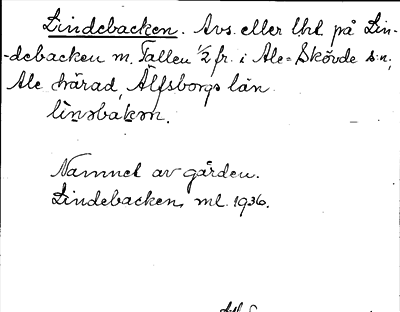 Lindebacken. Avs. eller lht på Lin-
-debacken m. Tallen 1/2 fr. i Ale-Skövde s:n,
Ale härad, Älfsborgs län
linəbakən.
Namnet av gården.
Lindebacken ml. 1936.